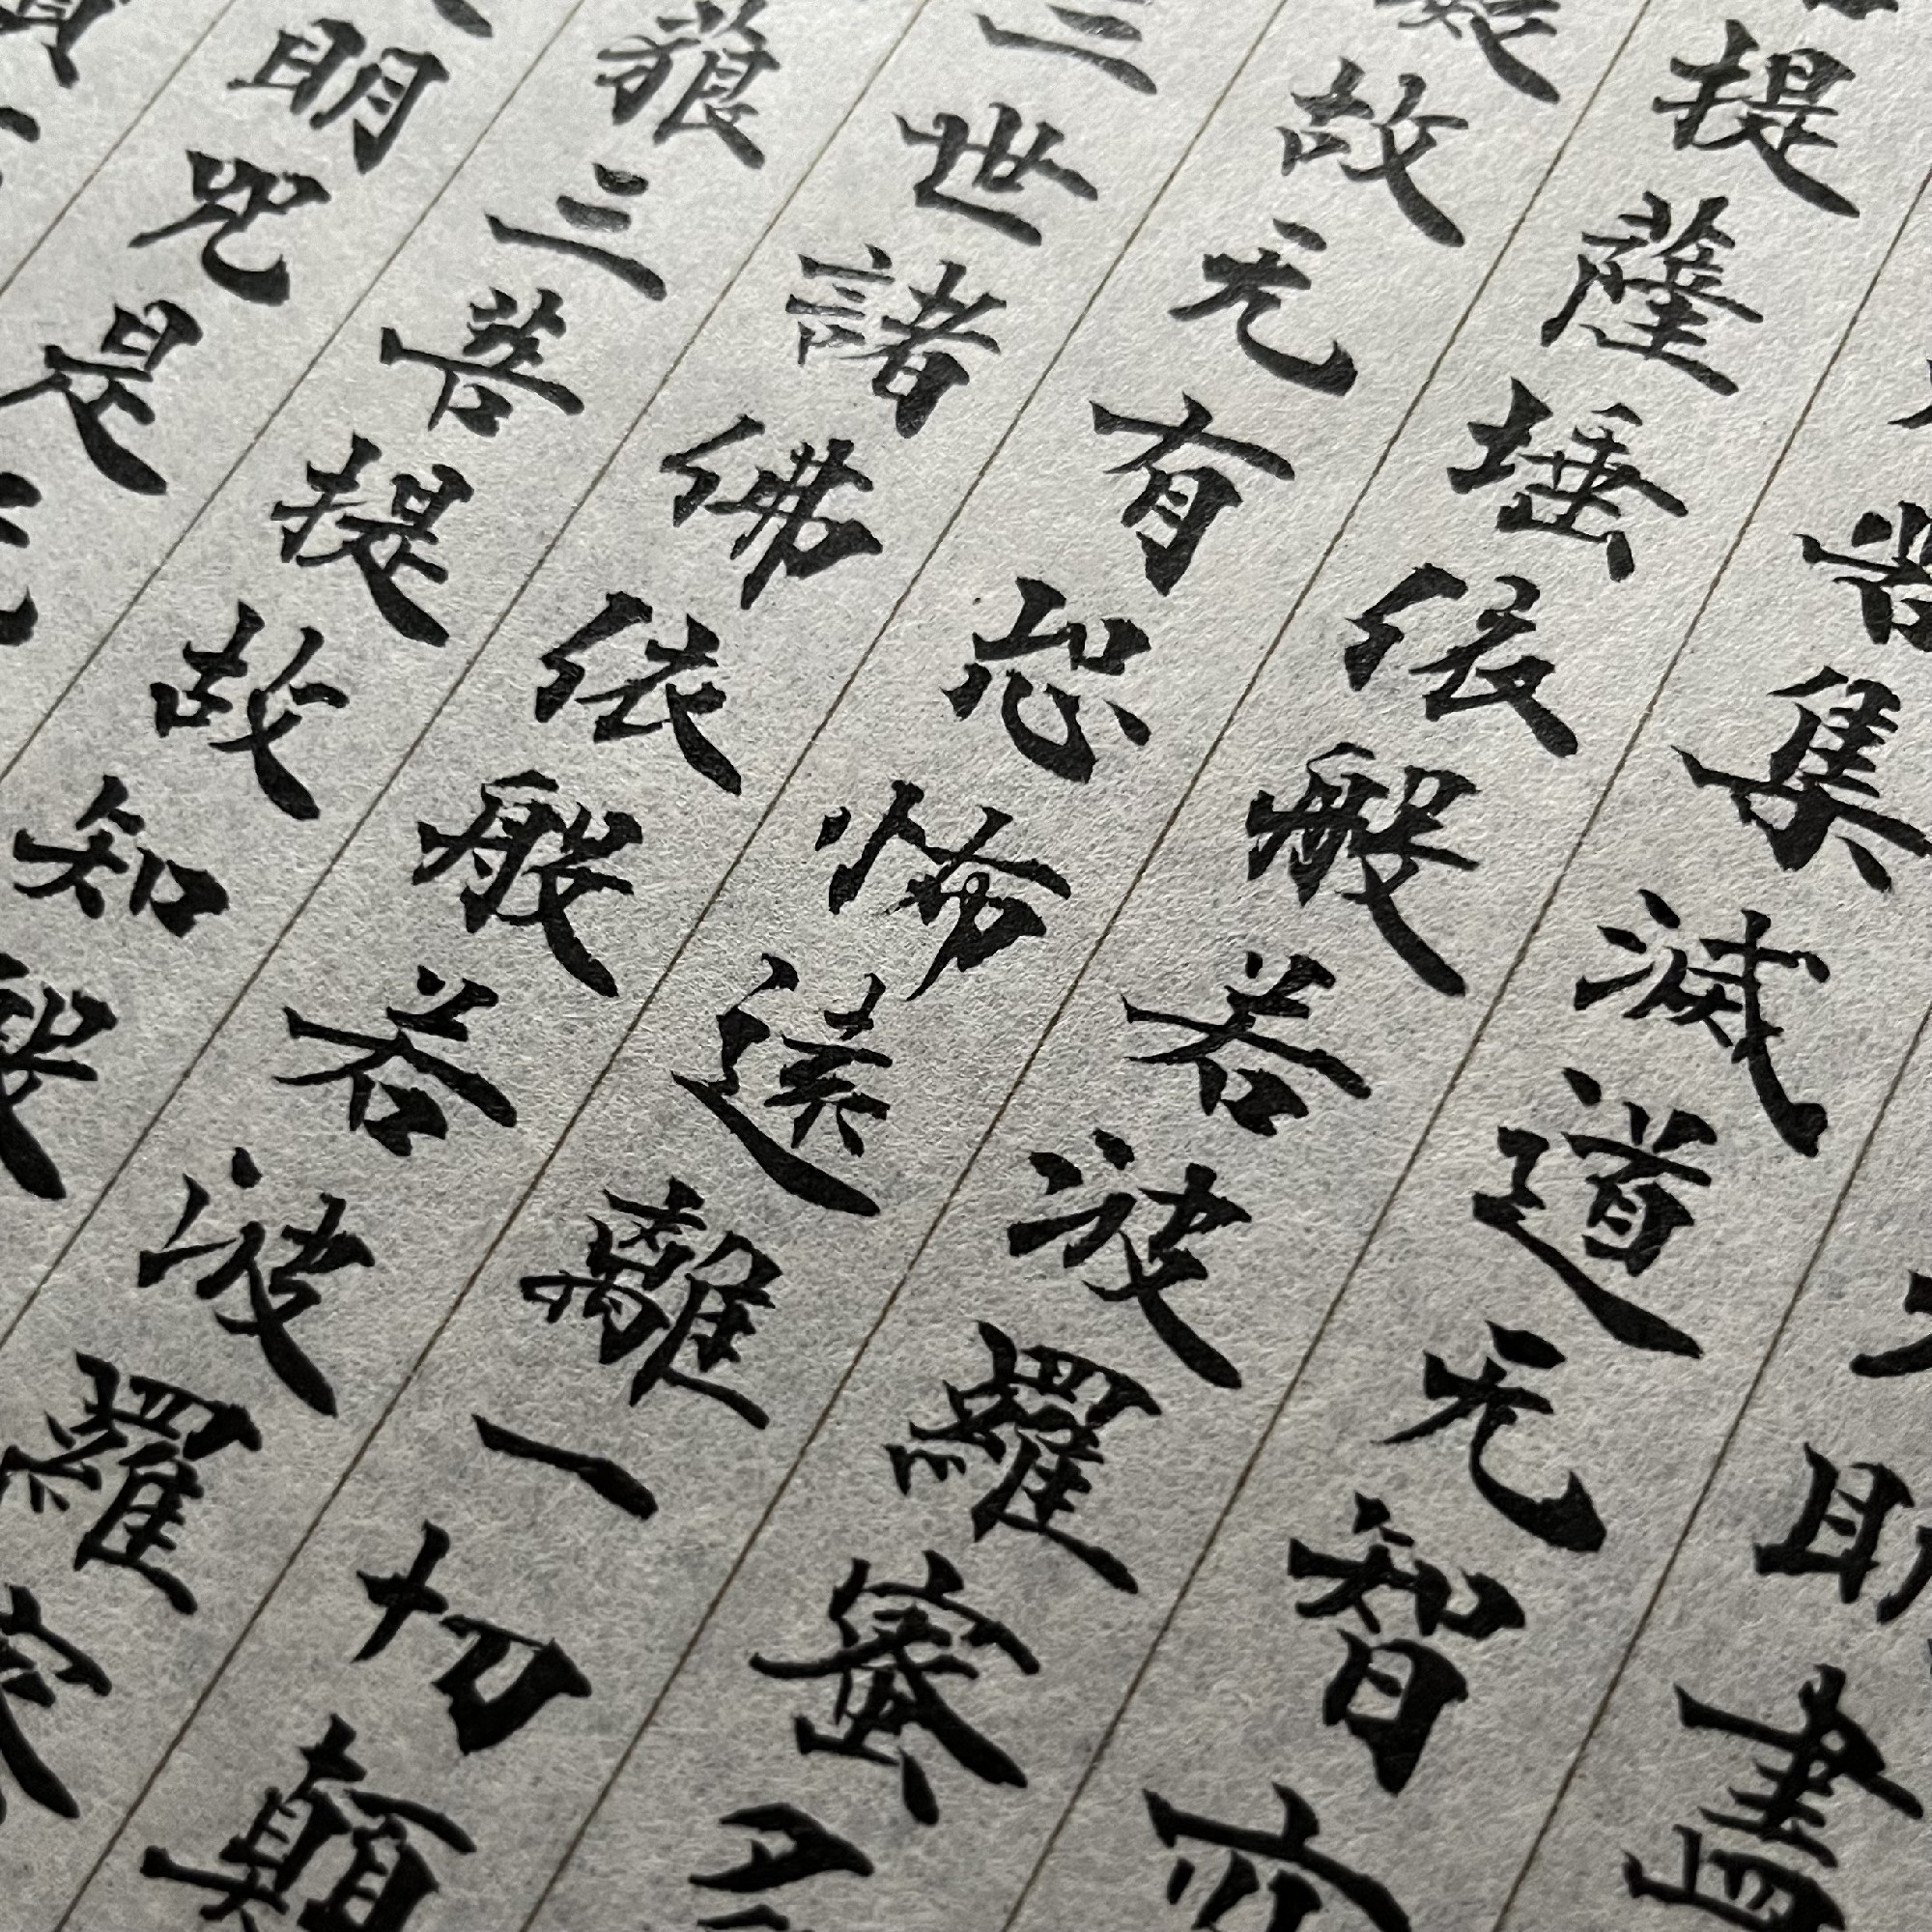 盡
苦集滅道无智亦
提薩埵依般若波羅蜜多
故无有恐怖遠離一切顛
三世諸佛依般若波羅
藐三菩提故知般
明咒是